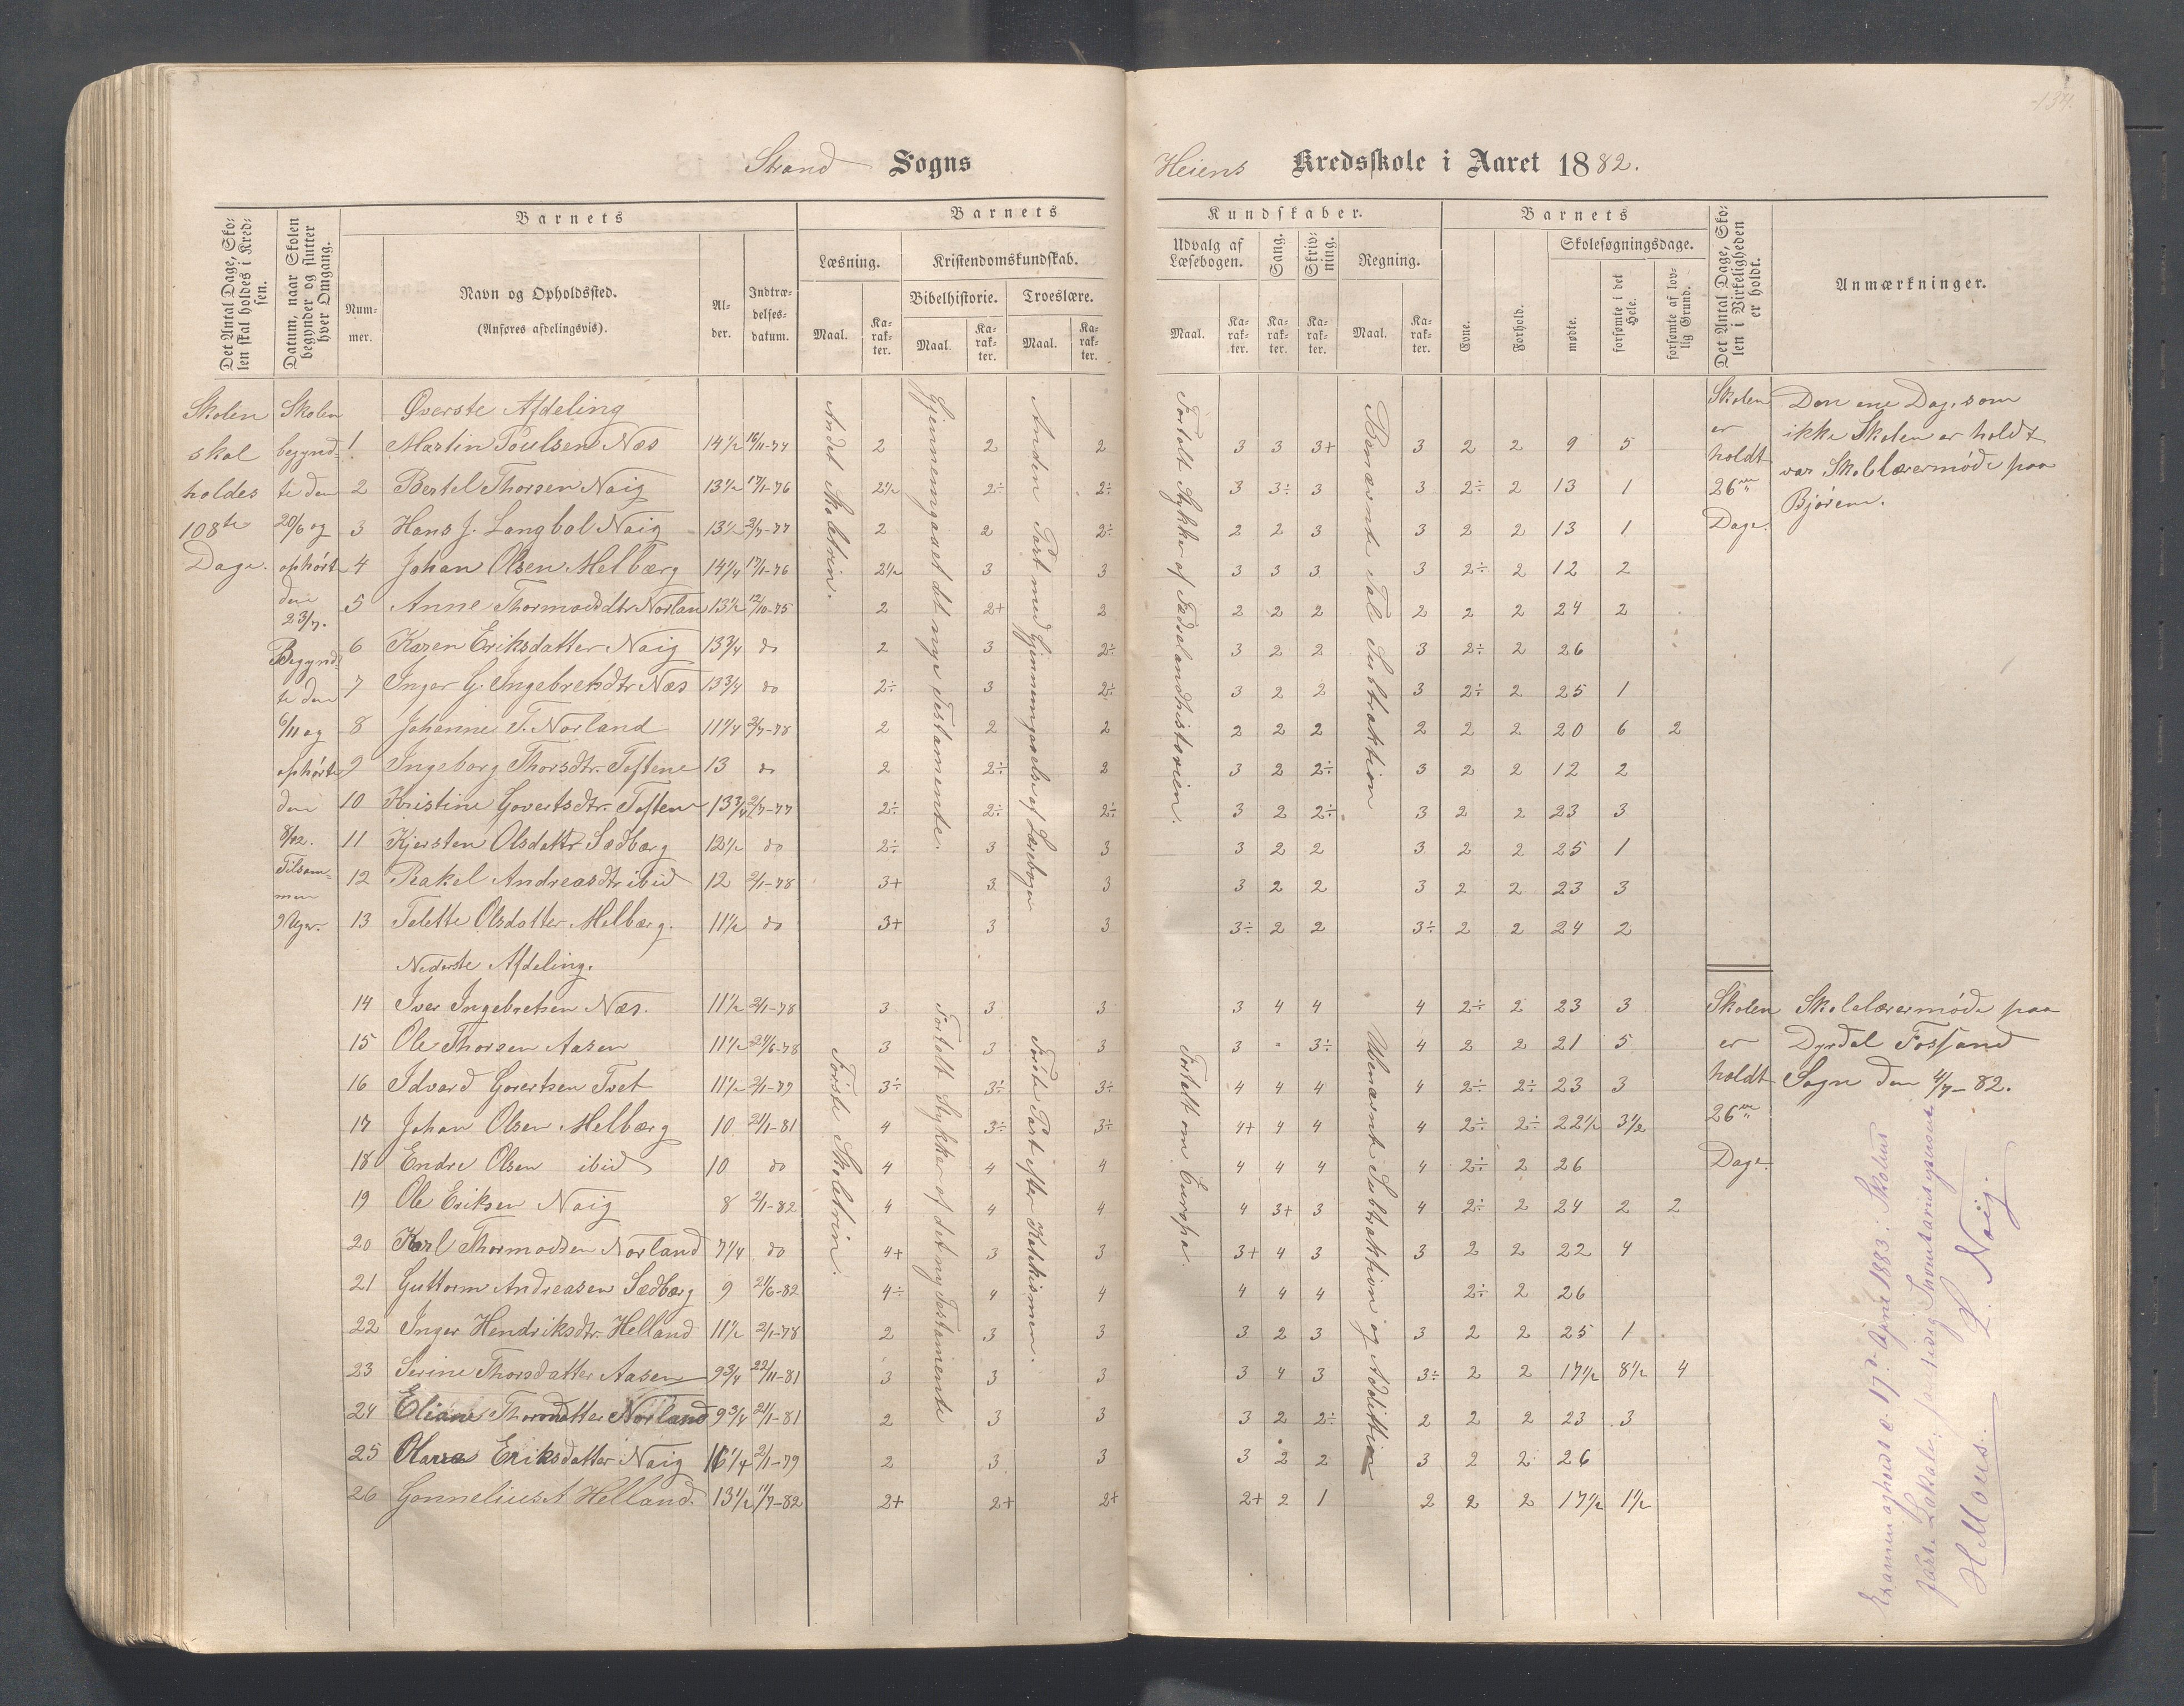 134.
Strand Sogns
Heiens Kredsskole i Aaret 1882.
Det Antal Dage, Sko-
len skal holdes i Kred-
sen.
Datum, naar Skolen
begynder og slutter
hver Omgang.
Barnets
Num-
mer.
Navn og Opholdssted.
(Anføres afdelingsvis).
Al-
der.
Indtræ-
delses-
datum.
Barnets
Læsning.
Maal.
Ka-
rak-
ter.
Kristendomskundskab.
Bibelhistorie.
Maal.
Ka-
rak-
ter.
Troeslære.
Maal.
Ka-
rak-
ter.
Kundskaber.
Udvalg af
Læsebogen.
Maal.
Ka-
rak-
ter.
Sang.
Ka-
rak-
ter.
Skriv-
ning.
Ka-
rak-
ter.
Regning.
Maal.
Ka-
rak-
ter.
Barnets
Evne.
Forhold.
Skolesøgningsdage.
mødte.
forsømte i det
Hele.
forsømte af lov-
lig Grund.
Det Antal Dage, Sko-
len i Virkeligheden
er holdt.
Anmærkninger.
Skolen
skal
holdes
108te
Dage.
Skolen
begynd-
te den
20/6 og
ophørte
den
23/7.
Begynd-
te den
6/11 og
ophørte
den
8/12.
Tilsam-
men
9 Uger.
Øverste Afdeling
1 Martin Poulsen Næs 14 1/2 16/11-74 2 2 2 3 3 3+ 3 2 2 9 5
2 Bertel Thorsen Naig 13 1/2 17/1-76 2 1/2 2÷ 2÷ 3 3÷ 3 3 2÷ 2 13 1
3 Hans J. Langbol Naig 13 1/2 2/7-77 2 2 2÷ 2 2 3 3 2 2 13 1
4 Johan Olsen Melbærg 14 1/4 17/1-76 2 1/2 3 3 3 3 3 3 2÷ 2 12 2
5 Anne Thormodsdtr Norlan 13 1/2 12/10-75 2 2+ 2 2 2 2 2 2 2 24 2
6 Karen Eriksdatter Naig 13 3/4 do 2 3 2÷ 3 2 2 3 2÷ 2 26
7 Inger G. Ingebretsdtr Næs 13 3/4 do 2÷ 3 2÷ 3 2 2 3 2÷ 2 25 1
8 Johanne T. Norland 11 1/4 2/7-78 2 2 2 2 2 2 2 2 2 20 6 2
9 Ingeborg Thorsdtr. Toftene 13 do 2 2÷ 2 3 2 2÷ 3 2 2 12 2
10 Kristine Govertsdtr. Toften 13 3/4 2/7-77 2÷ 2÷ 2÷ 3 2 2÷ 3 2 2 23 3
11 Kjersten Olsdattr Sædbærg 12 1/2 do 2÷ 3 3 3 2 2 3 2 2 25 1
12 Rakel Andreasdtr ibid 12 2/1-78 3+ 3 3 3 2 2 3 2 2 23 3
13 Talette Olsdatter Melbærg. 11 1/2 do 3+ 3 3 3÷ 2 2 3÷ 2 2 24 2
Nederste Afdeling.
14 Iver Ingebretsen Næs. 11 1/2 2/1-78 3 3 3 3 4 4 4 2÷ 2 23 3
15 Ole Thorsen Aasen 11 1/2 24/6-78 3 3 3 3 " 3÷ 4 2 2 21 5
16 Edvard Govertsen Tvet 11 1/2 2/1-79 3÷ 3÷ 3÷ 4 4 4 4 2÷ 2÷ 23 3
17 Johan Olsen Melbærg 10 21/1-81 4 3÷ 3÷ 4+ 4 4 4 2÷ 2÷ 22 1/2 3 1/2
18 Endre Olsen ibid 10 do 4 4 4 4 4 4 4 2÷ 2 26
19 Ole Eriksen Naig 8 2/1-82 4 4 4 4 3+ 3 4 2÷ 2 24 2 2
20 Karl Thormodsen Norland 7 1/4 do 4+ 3 3 3+ 4 3 3 2 2 22 4
21 Guttorm Andreasen Sædbærg 9 21/6-82 4÷ 4 4 4 4 4 2÷ 2 26
22 Inger Hendriksdtr. Helland 11 1/2 2/1-78 2 3 3 3 2 3 3 2 2 25 1
23 Serine Thorsdatter Aasen 9 3/4 22/11-81 3 3 3 3 4 3 3÷ 2 2 17 1/2 8 1/2 4
24 Eliane Thormdatter Norland 9 3/4 21/1-81 2 3 3 3 2 2÷ 2 2 2 23 3
25 Eriksdatter Naig 2/1-79 2 3 3 3 2 2 3 2 2 26
26 Gonnelius A Helland. 13 1/2 11/7-82 2+ 2+ 2+ 2+ 2 1 2 2 2 17 1/2 1 1/2
Andet Skoletrin.
Gjennemgaaet det nye Testamente.
Anden Part med Gjennemgaaelse af Lærebogen
Fortalt Stykker af Fædrelandhistorien.
Benævnte Tal Subtraktion
Første Skoletrin.
Fortalt Stykker af det ny Testamente
Første Part efter Katekismen.
Fortalt om Europa.
Ubenævnt Subtraktion og Addittion
Skolen
er
holdt
26ve
Dage.
Den ene Dag, som
ikke Skolen er holdt
var Skolelærermøde paa
Bjørem.
Skolen
er
holdt
26ve
Dage.
Skolelærermøde paa
Dyrdal Fossand
Sogn den 4/7-82.
17d. April 1883: Skolens
L. Naig.
H. Mous.